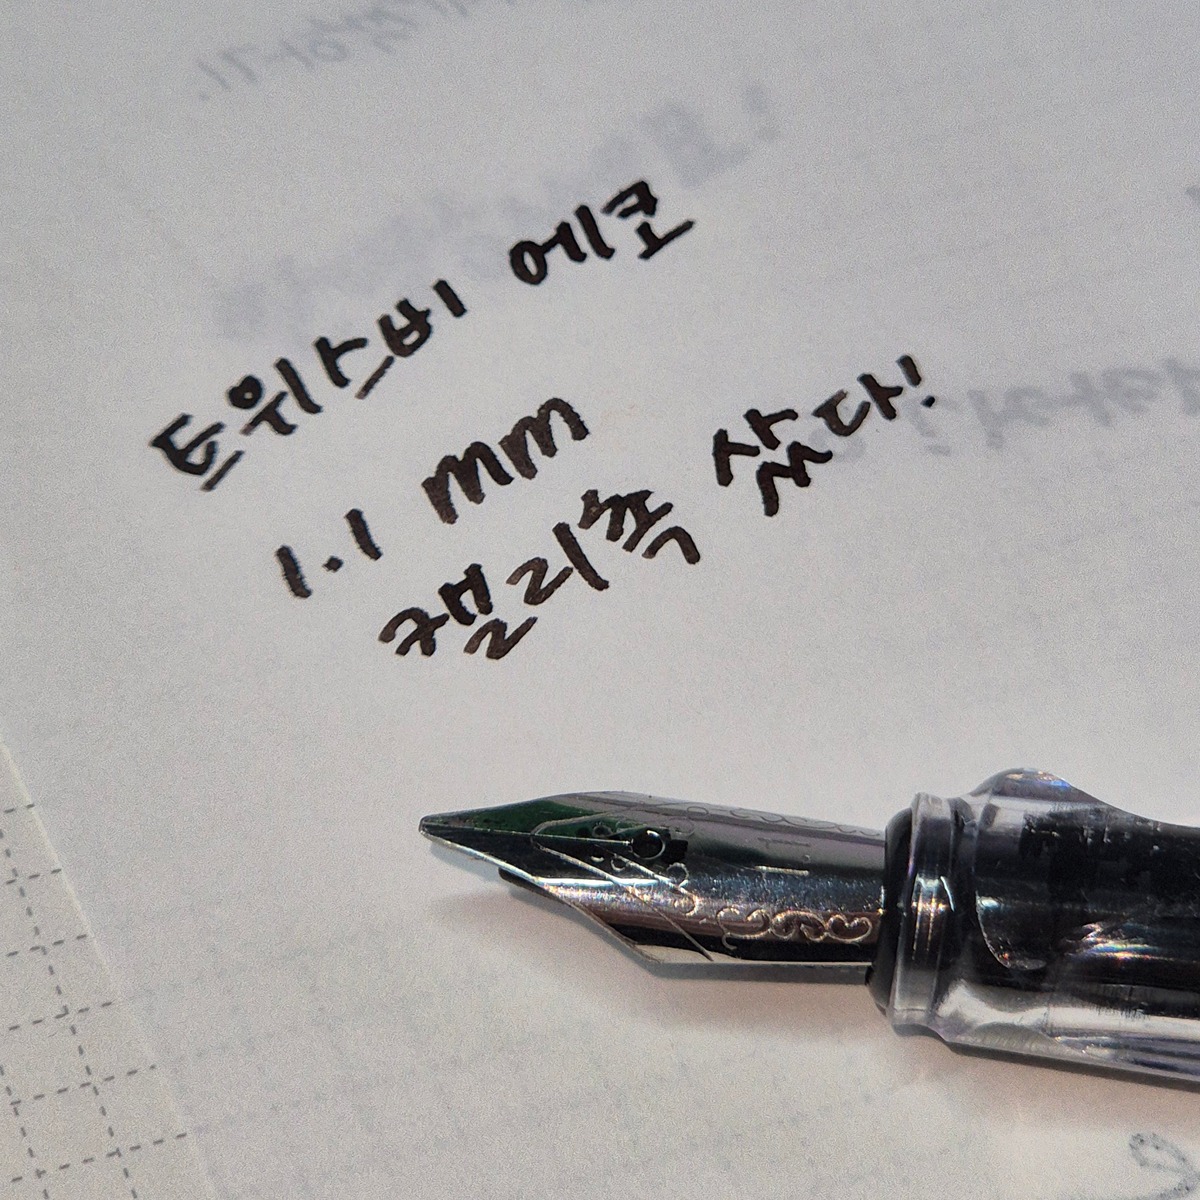 트위스비 에코
1.1 mm
캘리촉 샀다!